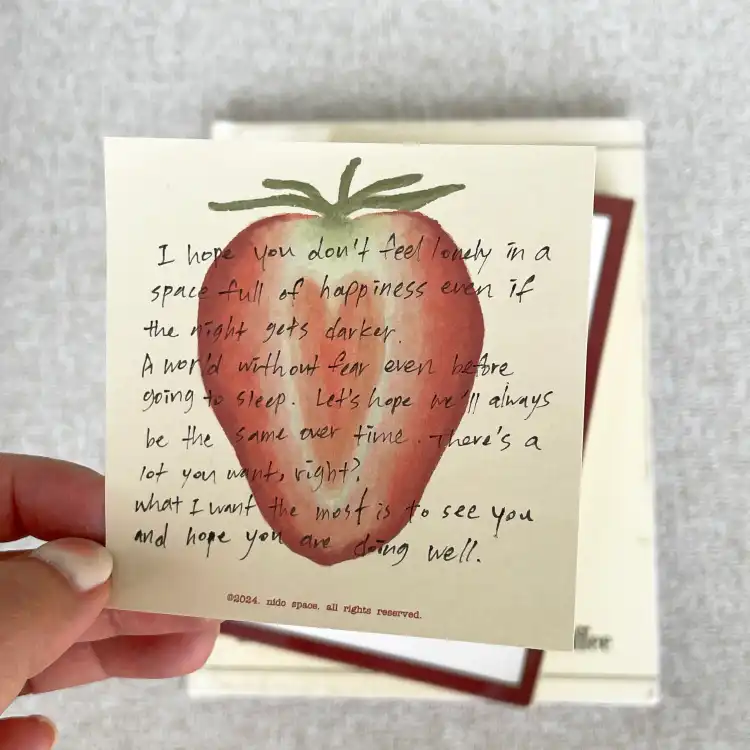 I hope you don't feel lonely in a
space full of happiness even if
the night gets darker.
A world without fear even before
going to sleep. Let's hope we'll always
be the same over time. There's a
lot you want, right?
what I want the most is to see you
and hope you are doing well.
©2024. nido space. all rights reserved.